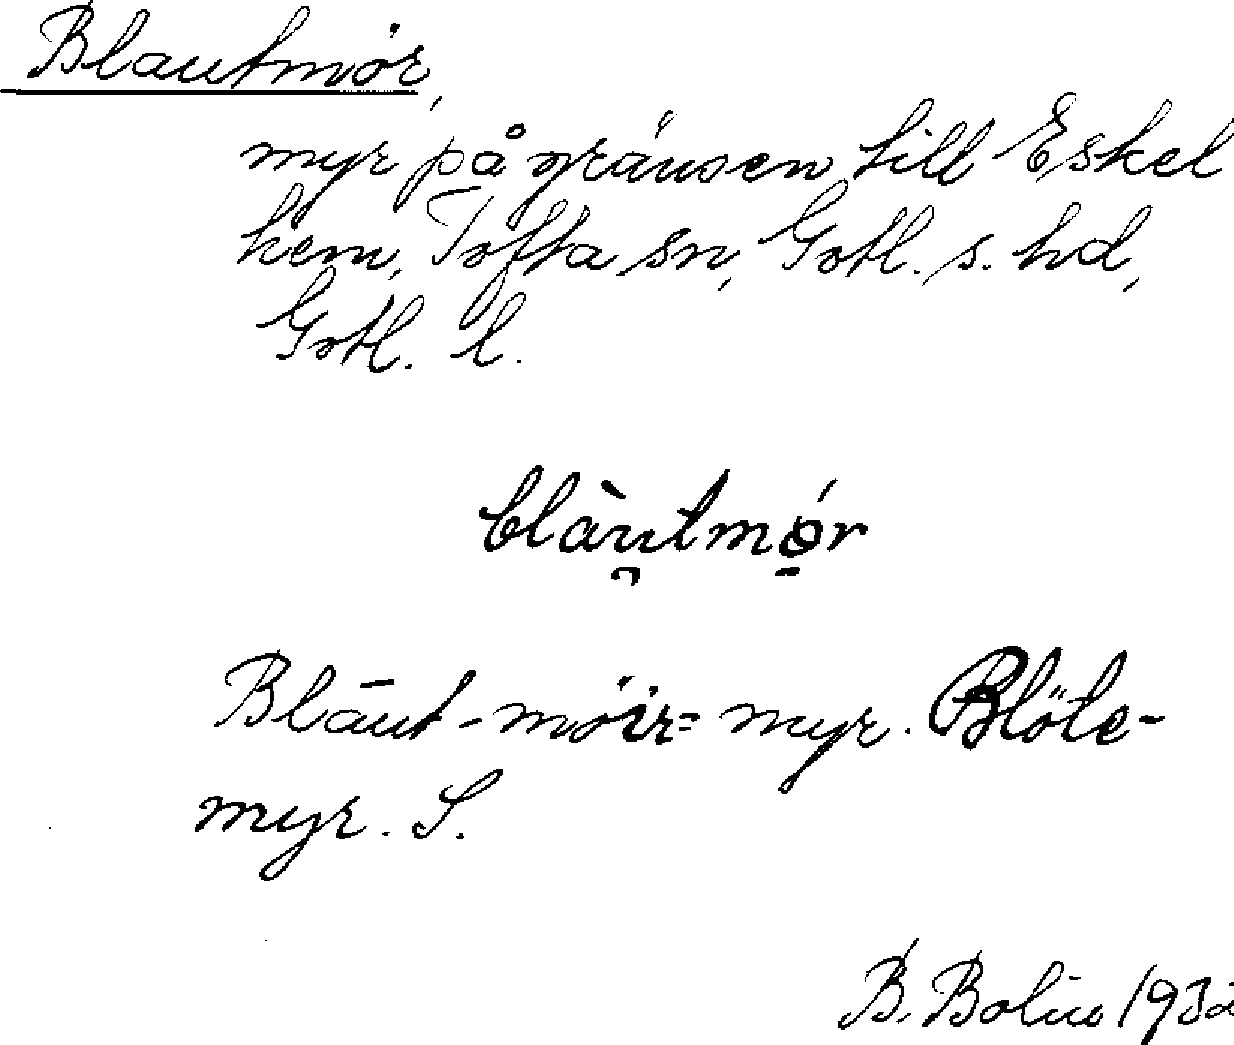 Blautmör,
myr på gränsen till Eskel
hem, Tofta sn, Gotl. s. hd,
Gotl. l.
blàu̯tmǿ̠r
Blāut-möir= myr. Blöte-
myr. S.
B. Bolin 1932